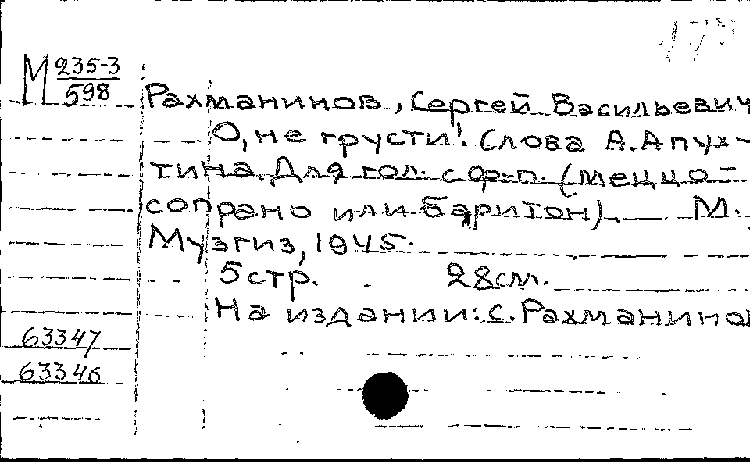 М 235-3
598
Рахманинов, Сергей Васильевич
О, не грусти! Слова А. Апух-
тина. Для гол. с ф-п. (меццо-
сопрано или баритон). М.
Музгиз, 1945.
5 стр. 28 см.
На издании: С. Рахманинов
63347
63346